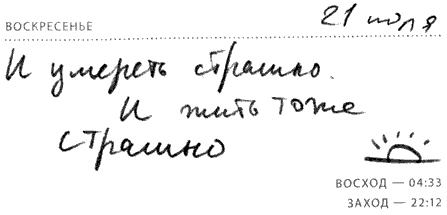 ВОСКРЕСЕНЬЕ 21 июля
И умереть страшно.
И жить тоже
страшно
ВОСХОД — 04:33
ЗАХОД — 22:12